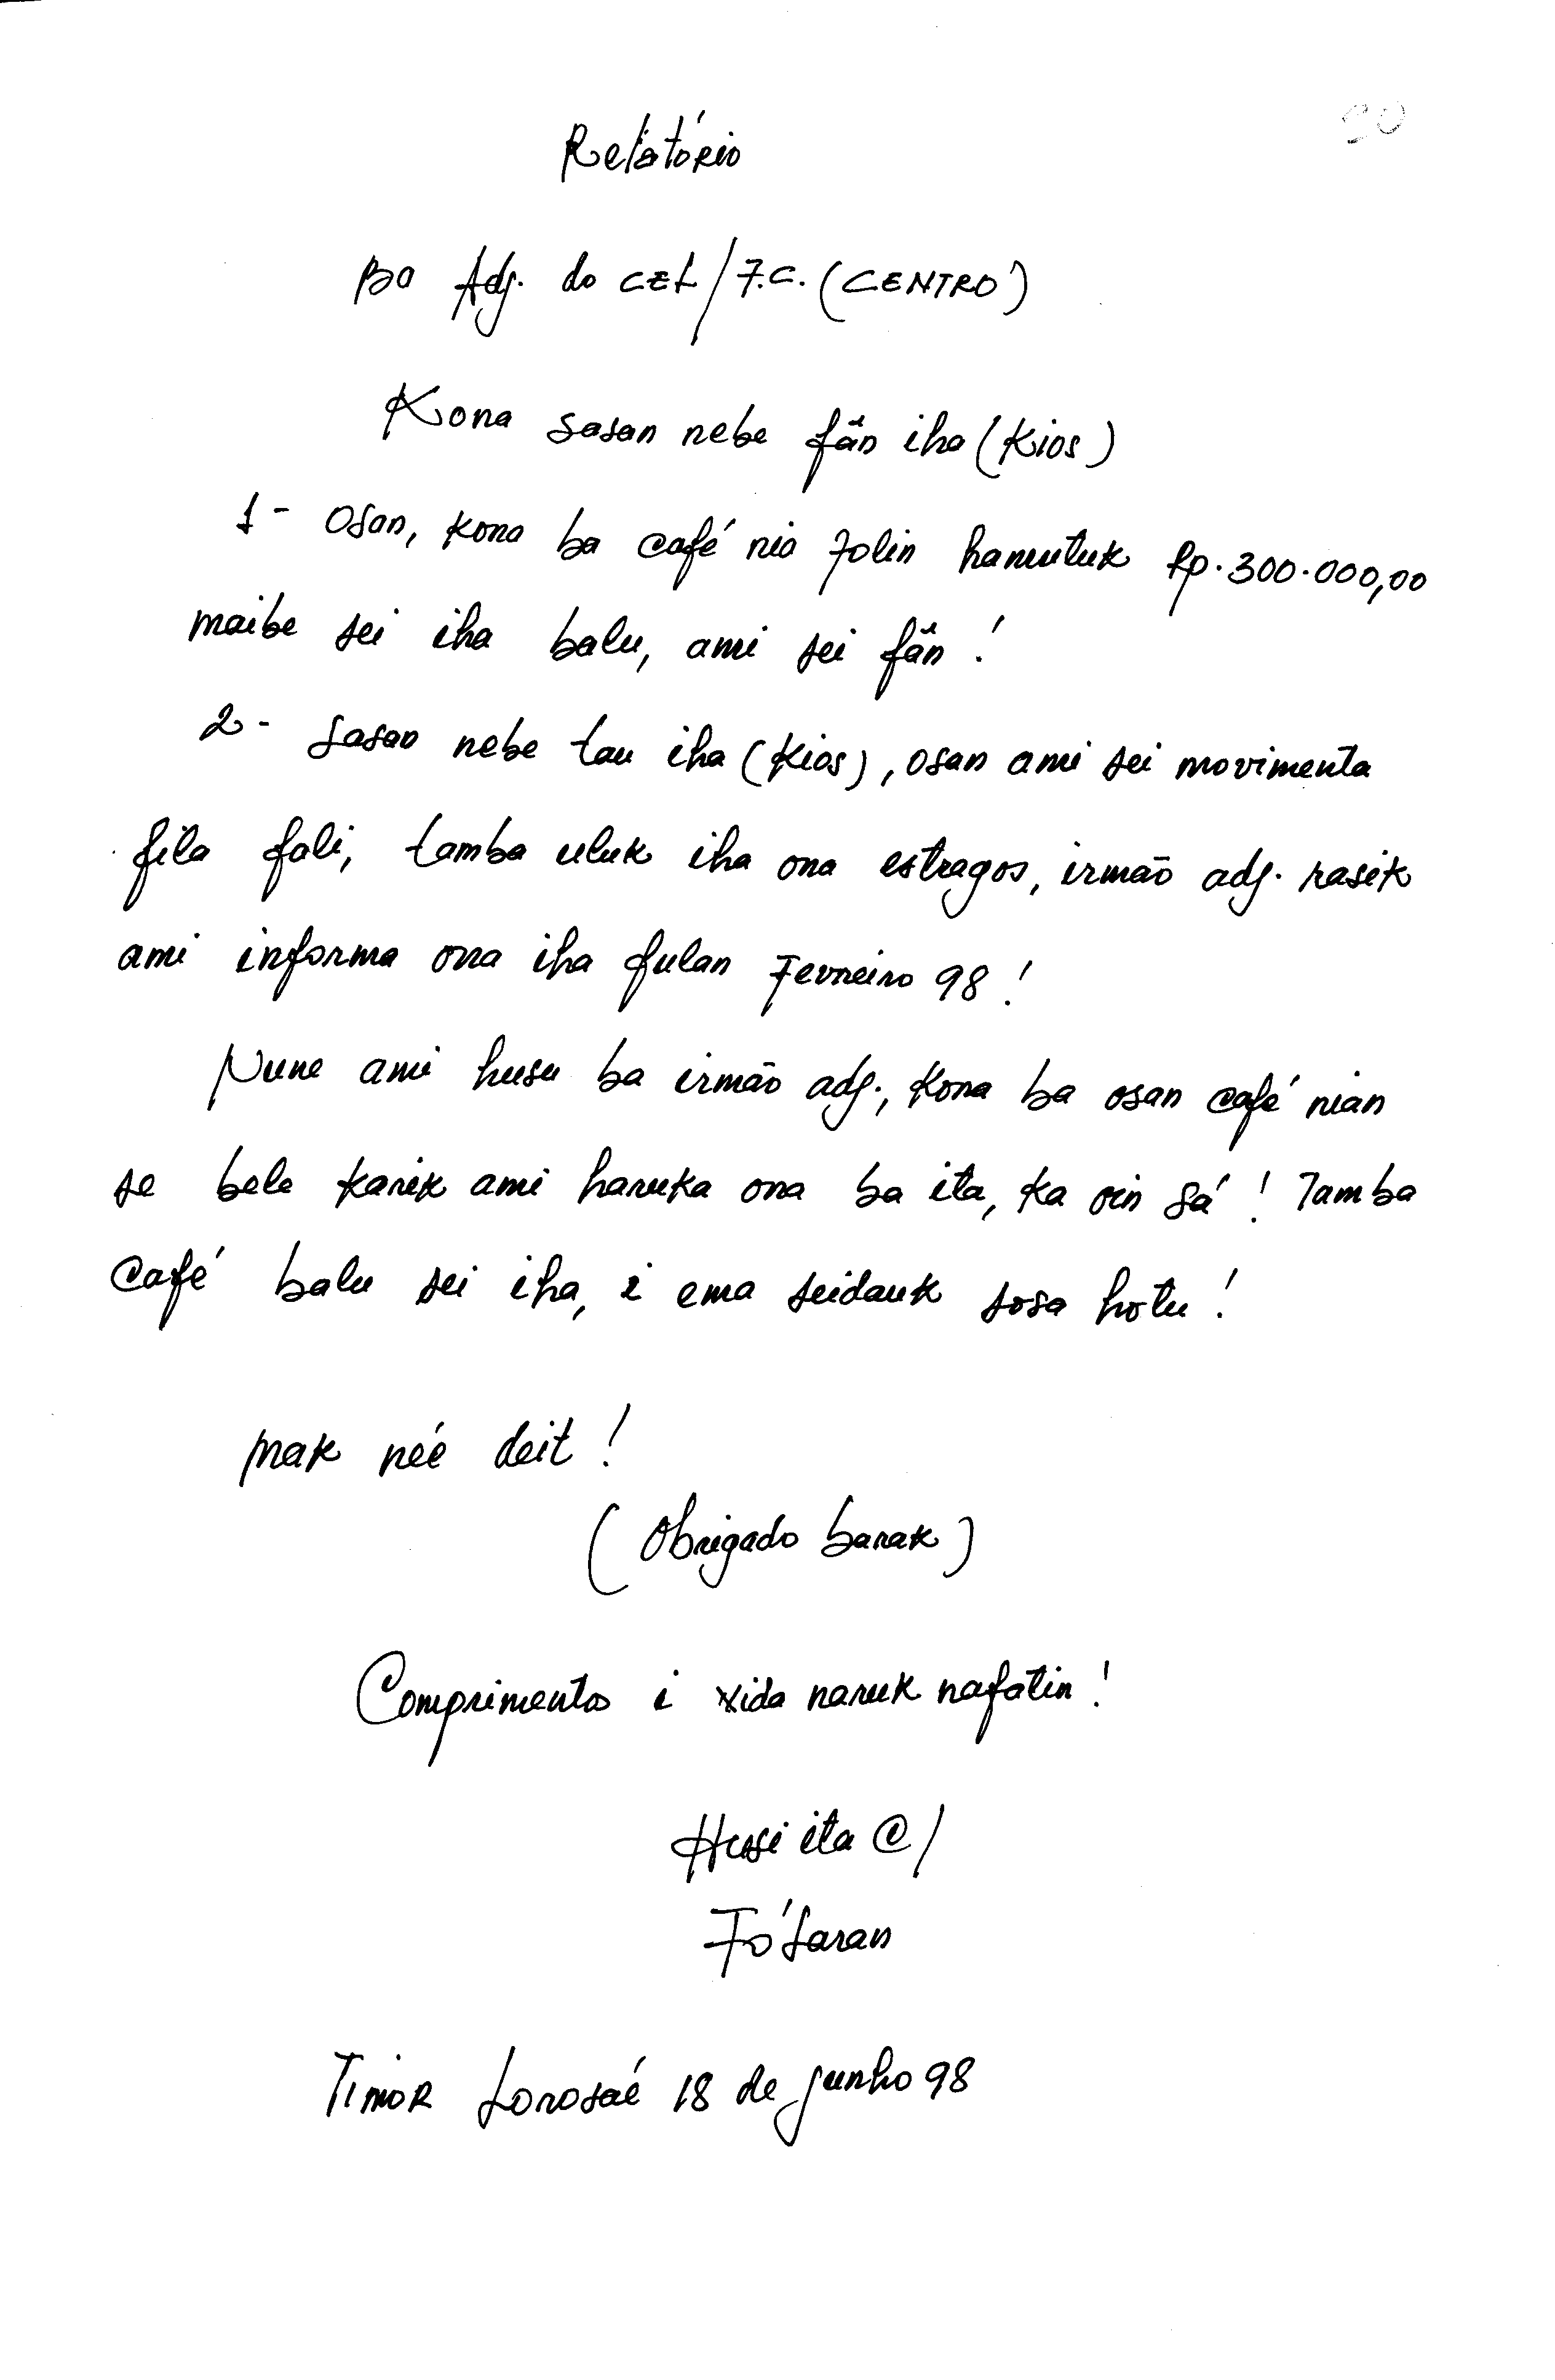 90
Relatório
Ba Adj. do CEL/F.C. (CENTRO)
Kona sasan nebe fãn iha (Kios)
1 - Osan, kona ba café nia folin hamutuk Rp. 300.000,00
maibe sei iha balu, ami sei fãn !
2 - Sasan nebe tau iha (Kios), osan ami sei movimenta
fila fali, tamba uluk iha ona estragos, irmão adj. rasik
ami informa ona iha fulan Fevreiro 98 !
Nune ami husu ba irmão adj., kona ba osan café nian
se bele karik ami haruka ona ba ita, ka oin sá ! Tamba
Café balu sei iha, i ema seidauk sosa hotu !
mak néé deit !
(Obrigado barak)
Comprimentos i vida naruk nafatin !
Husi ita C/
Fó'Laran
Timor Lorosaé 18 de junho 98